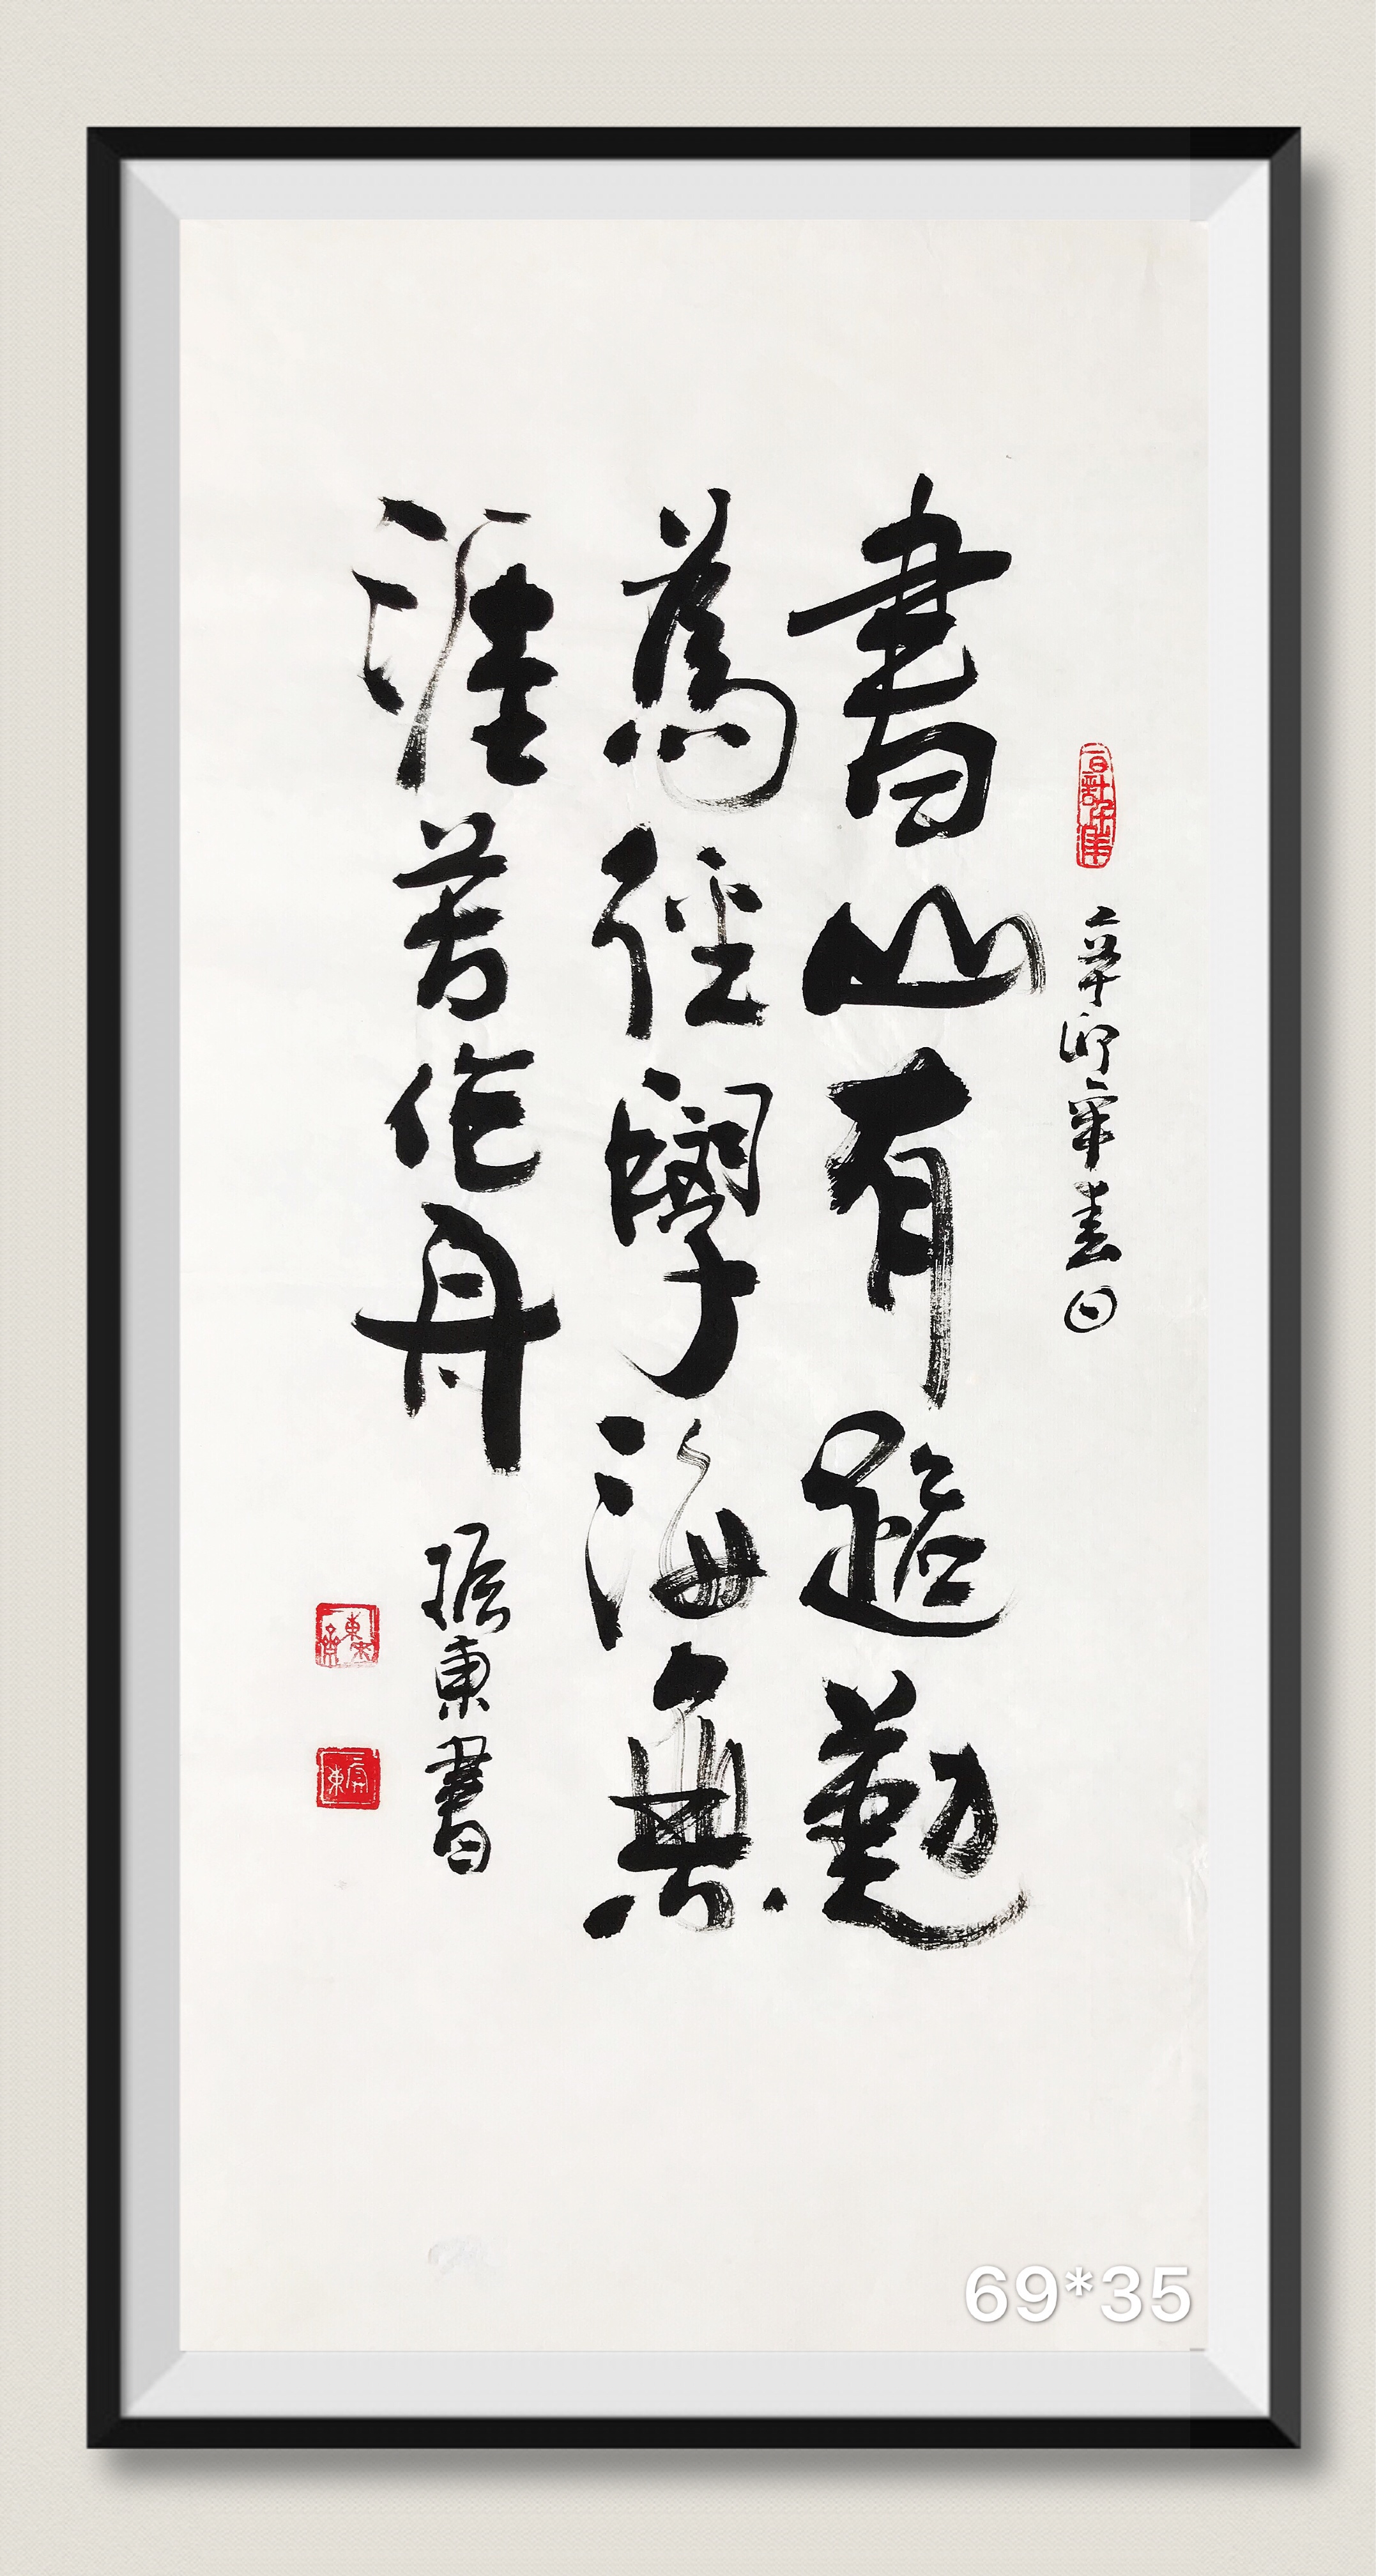 辛卯年春日
書山有路勤
為徑學海無
涯苦作舟
東書
69*35